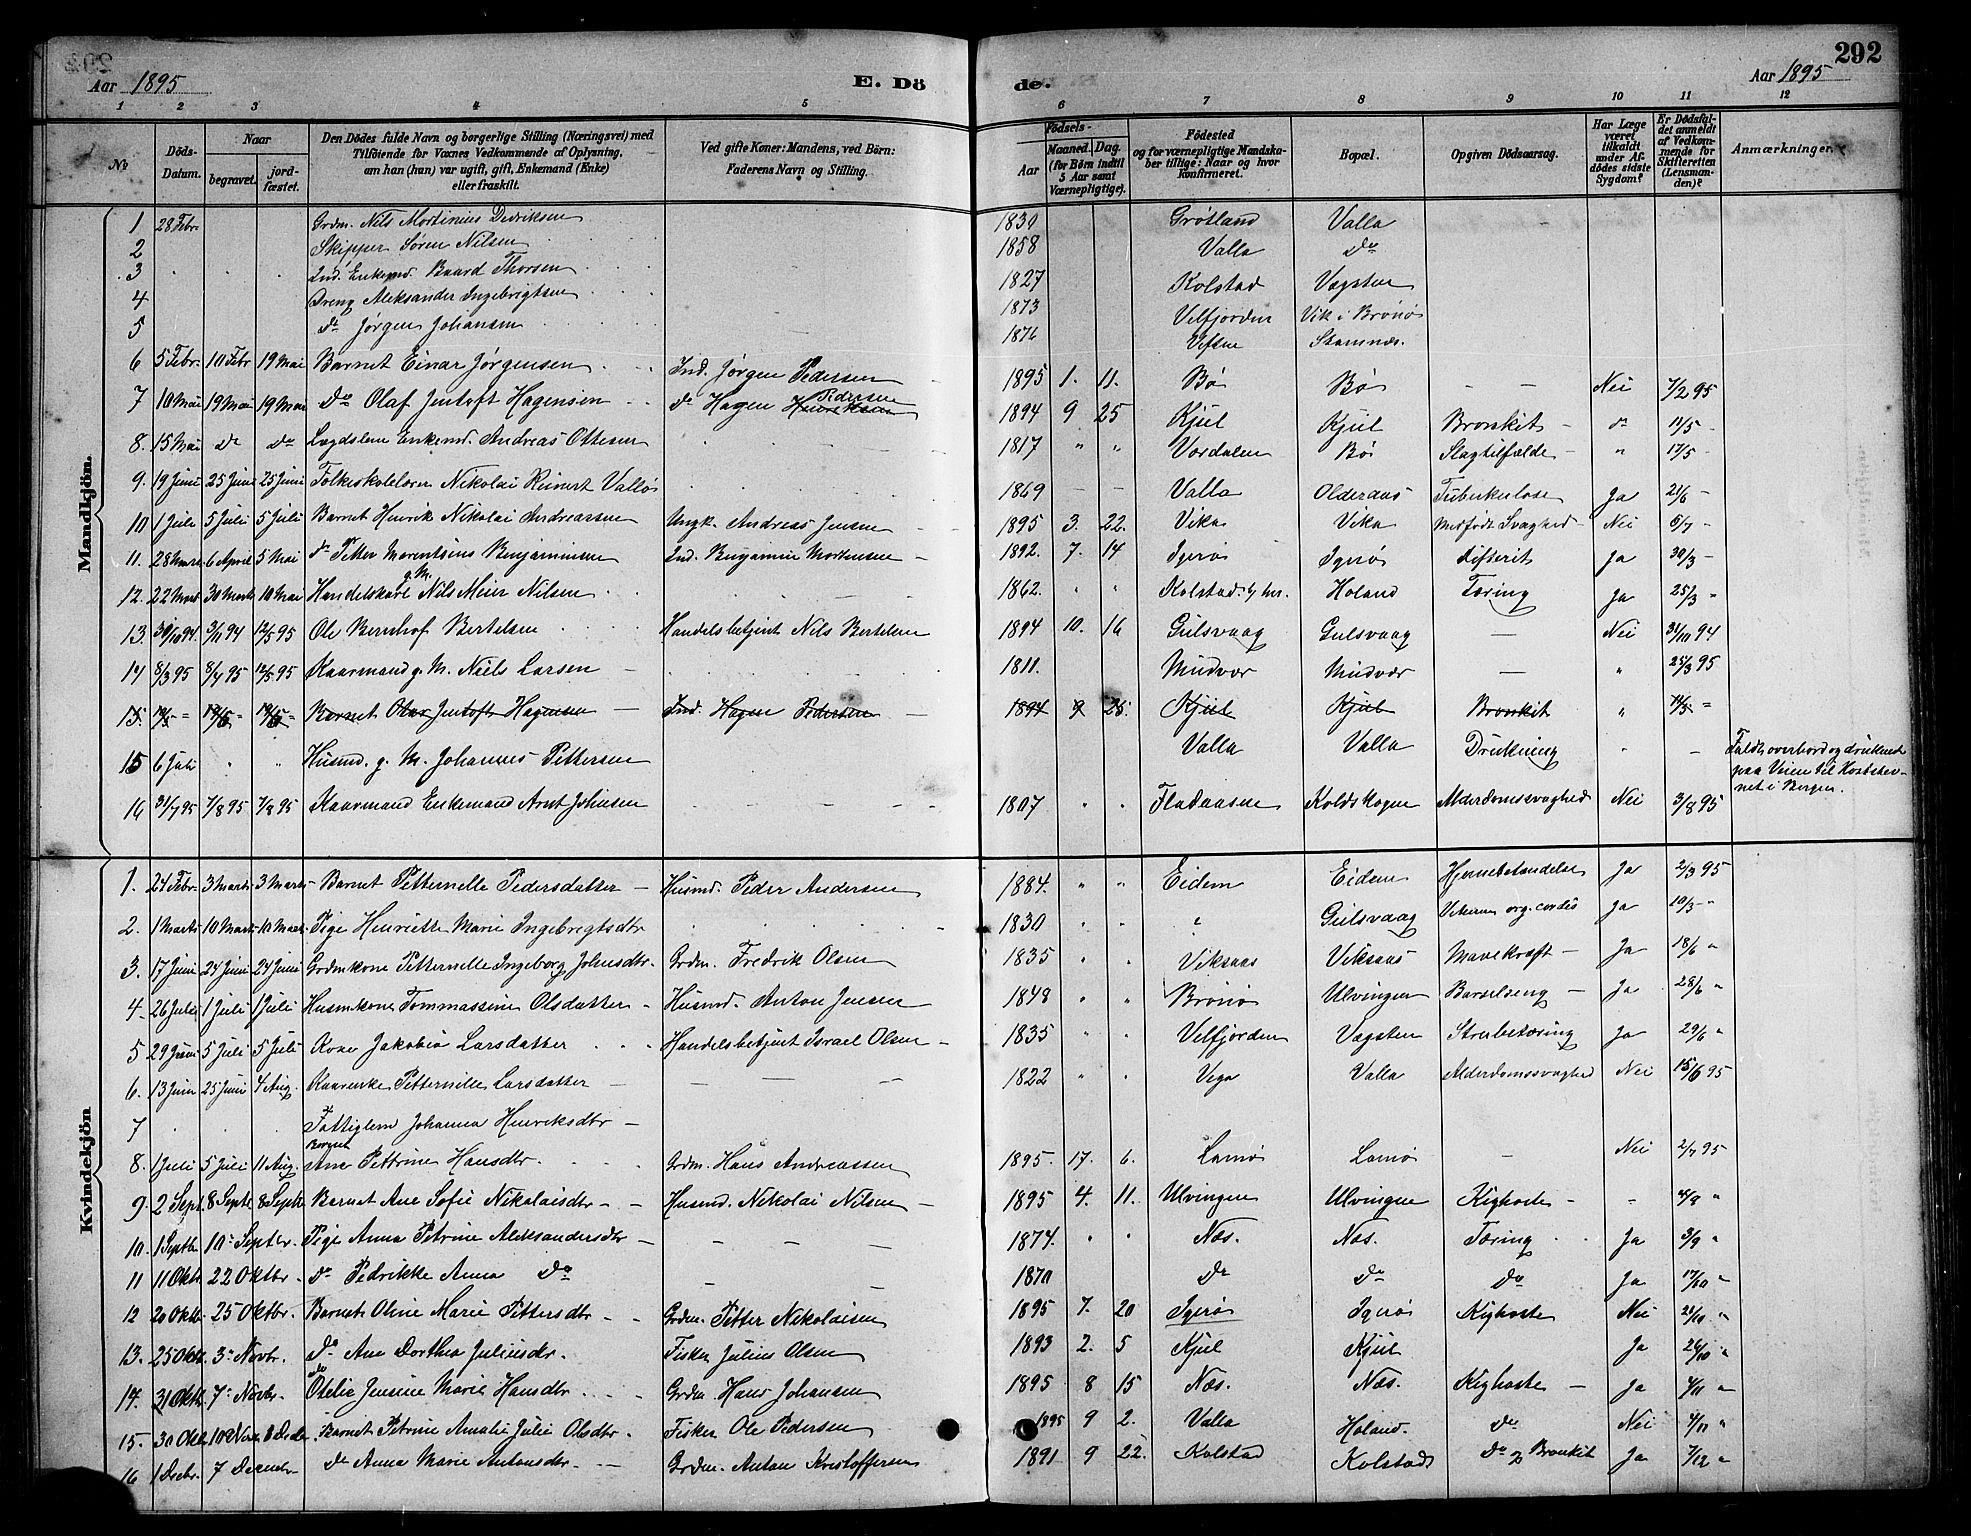 292
Aar 1895 E. Dö de. Aar 1895
1 2 3 4 5 6 7 8 9 10 11 12
No Döds-Datum. Naar begravet. jordfæstet. Den Dödes fulde Navn og borgerlige Stilling (Næringsvei) med Tilföiende for Voxnes Vedkommende af Oplysning, om han (hun) var ugift, gift, Enkemand (Enke) eller fraskilt. Ved gifte Koner: Mandens, ved Börn: Faderens Navn og Stilling. Födsels- Aar Maaned. Dag. (for Börn indtil 5 Aar samt Værnepligtige). Födested og for værnepligtige Mandskaber tillige: Naar og hvor Konfirmeret. Bopæl. Opgiven Dödsaarsag. Har Læge været tilkaldt under Afdödes sidste Sygdom? Er Dödsfaldet anmeldt af Vedkommende for Skifteretten (Lensmanden)? Anmærkninger.
Mandkjön.
1 28 Febr. Grdm. Nils Mortinius Dedriksen 1830 Grøtland Valla
2 Skipper Søren Nilsen 1858 Valla do
3 Ind. Enkemd. Baard Thorsen 1827 Kolstad Vægsten
4 Dreng Aleksander Ingebrigtsen 1873 Velfjorden Vik i Brønø
5 do Jørgen Johansen 1876 Vefsen
6 5 Febr. 10 Febr 19 Mai Barnet Einar Jørgensen Ind. Jørgen Pedersen 1895 1. 11. Bø Bø - - Nei 7/2 95
7 10 Mai 19 Mai 19 Mai do Olaf Jentoft Hagensen do Hagen Pedersen 1894 9 25 Kjul Kjul Bronkit - do 11/5 -
8. 15 Mai do do Lægdslem Enkemd. Andreas Ottesen 1817 " " Vordalen Bø Slagtilfælde - " 17/5 -
9. 19 Juni 25 Juni 25 Juni Folkeskolelærer Nikolai Reinert Valløs 1869 - - Valla Olderaas Tuberkulose Ja 21/6 -
10 1 Juli 5 Juli 5 Juli Barnet Henrik Nikolai Andreassen Ungk. Andreas Jensen 1895 3. 22. Vika Vika Medfødt Svaghed - Nei 5/7 -
11. 28 Marts 6 April 5 Mai do Petter Morentsius Benjaminsen Ind. Benjamin Mortensen - 1892. 7. 14 Igerø Igerø Difterit Ja 30/3 -
12. 22 Marts 30 Marts 10 Mai Handelskarl g. M. Nils Meier Nilsen 1862. " " Kolstad Holand Tæring Ja 25/3 "
13. 30/10 94 3/11 94 12/5 95 Ole Bernhof Bertelsen Handelsbetjent Nils Bertelsen 1894 10. 16 Gulsvaag Gulsvaag - Nei 31/10 94
14 8/3 95 8/4 95 12/5 95 Kaarmand g. M. Niels Larsen - 1811. Mudvær Mudvær - " 25/3 95
15. Barnet Olav Jentoft Hagensen Ind. Hagen Pedersen - 1894 9 25. Kjul Kjul Bronkit " 11/5 =
15 6 Juli " " Husmd. g. M. Johannes Pettersen Valla Valla Drukning " - Faldt overbord og druknede paa Veien til Høststevnet i Bergen.
16 31/7 95 7/8 95 7/8 95 Kaarmand Enkemand Arnt Johnsen 1807 " " Fladaasen Koldskogen Alderdomssvaghed Nei 3/8 95
Kvindekjön
1. 24 Febr. 3 Marts 3 Marts Barnet Petternelle Pedersdatter - Husmd. Peder Andersen 1884. " " Eidem Eidem Hjernebetændelse Ja 2/3 95
2. 1 Marts 10 Marts 10 Marts Pige Henriette Marie Ingebregtsdtr 1830 " " " Gulsvaag org. cordis Ja 10/3 "
3. 17 Juni 24 Juni 24 Juni Grdmkone Petternelle Ingeborg Johnsdtr. Grdm. Fredrik Olsen 1835 " " Viksaas Viksaas Mavekræft - Ja 18/6 "
4. 26 Juli 1 Juli 1 Juli Husmkone Tommassine Olsdatter - Husmd. Anton Jensen 1848 " " Brønø Ulvingen Barselseng - Ja 28/6 "
5 29 Juni 5 Juli 5 Juli Kone Jakobia Larsdatter Handelsbetjent Israel Olsen - 1835 " " Velfjorden Vægsten Strubetæring Ja 29/6 "
6. 13 Juni 25 Juni 4 Aug. Kaarenke Petternille Larsdatter - - - 1822 " " Vega Valla Alderdomssvaghed Nei 15/6 95
7 Fattiglem Johanna Henriksdtr -
8. 1 Juli 5 Juli 11 Aug. Barnet Ane Pettrine Hansdtr. Grdm. Hans Andreassen 1895. 17. 6. Lamø Lamø - Nei 2/7 95
9. 2 Sept. 8 Septr 8 Septr Barnet Ane Sofie Nikolaisdtr - - Husmd. Nikolai Nilsen - 1895 4. 11. Ulvingen Ulvingen Kighoste - - 4/9 "
10. 1 Septbr. 10 Septbr. Pige Anna Petrine Aleksandersdtr - - - - 1874. " " Næs. Næs. Tæring Ja 3/9 "
11 11 Oktr. 22 Oktbr. do Pedrikke Anna do - - 1870 do do do Ja 17/10 "
12 20 Oktbr. 25 Oktbr. Barnet Oline Marie Pettersdtr - - Grdm. Petter Nikolaisen 1895 7. 20 Igerø Igerø Kighoste Nei 21/10 "
13. 25 Oktbr. 3 Novbr. do Ane Dorthea Juliusdtr. Fisker Julius Olsen 1893 2. 5 Kjul Kjul Ja 26/10 "
14. 31 Oktbr. 7 Novbr. do Otelie Jensine Marie Hansdtr Grdm. Hans Johansen 1895 8 15 Næs. Næs. Kighoste - Ja 4/11 "
15. 30 Oktbr. 10 Novbr. 8 Decbr. Barnet Petrine Amalie Julie Olsdtr. Fisker Ole Pedersen 1895 9 2. Valla Holand. do Nei 4/11 "
16 1 Decbr. 7 Decembr. do Anna Marie Antonsdtr. - - Grdm. Anton Kristoffersen 1891 9 22. Kolstad Kolstad do og Bronkit Ja 7/12 "